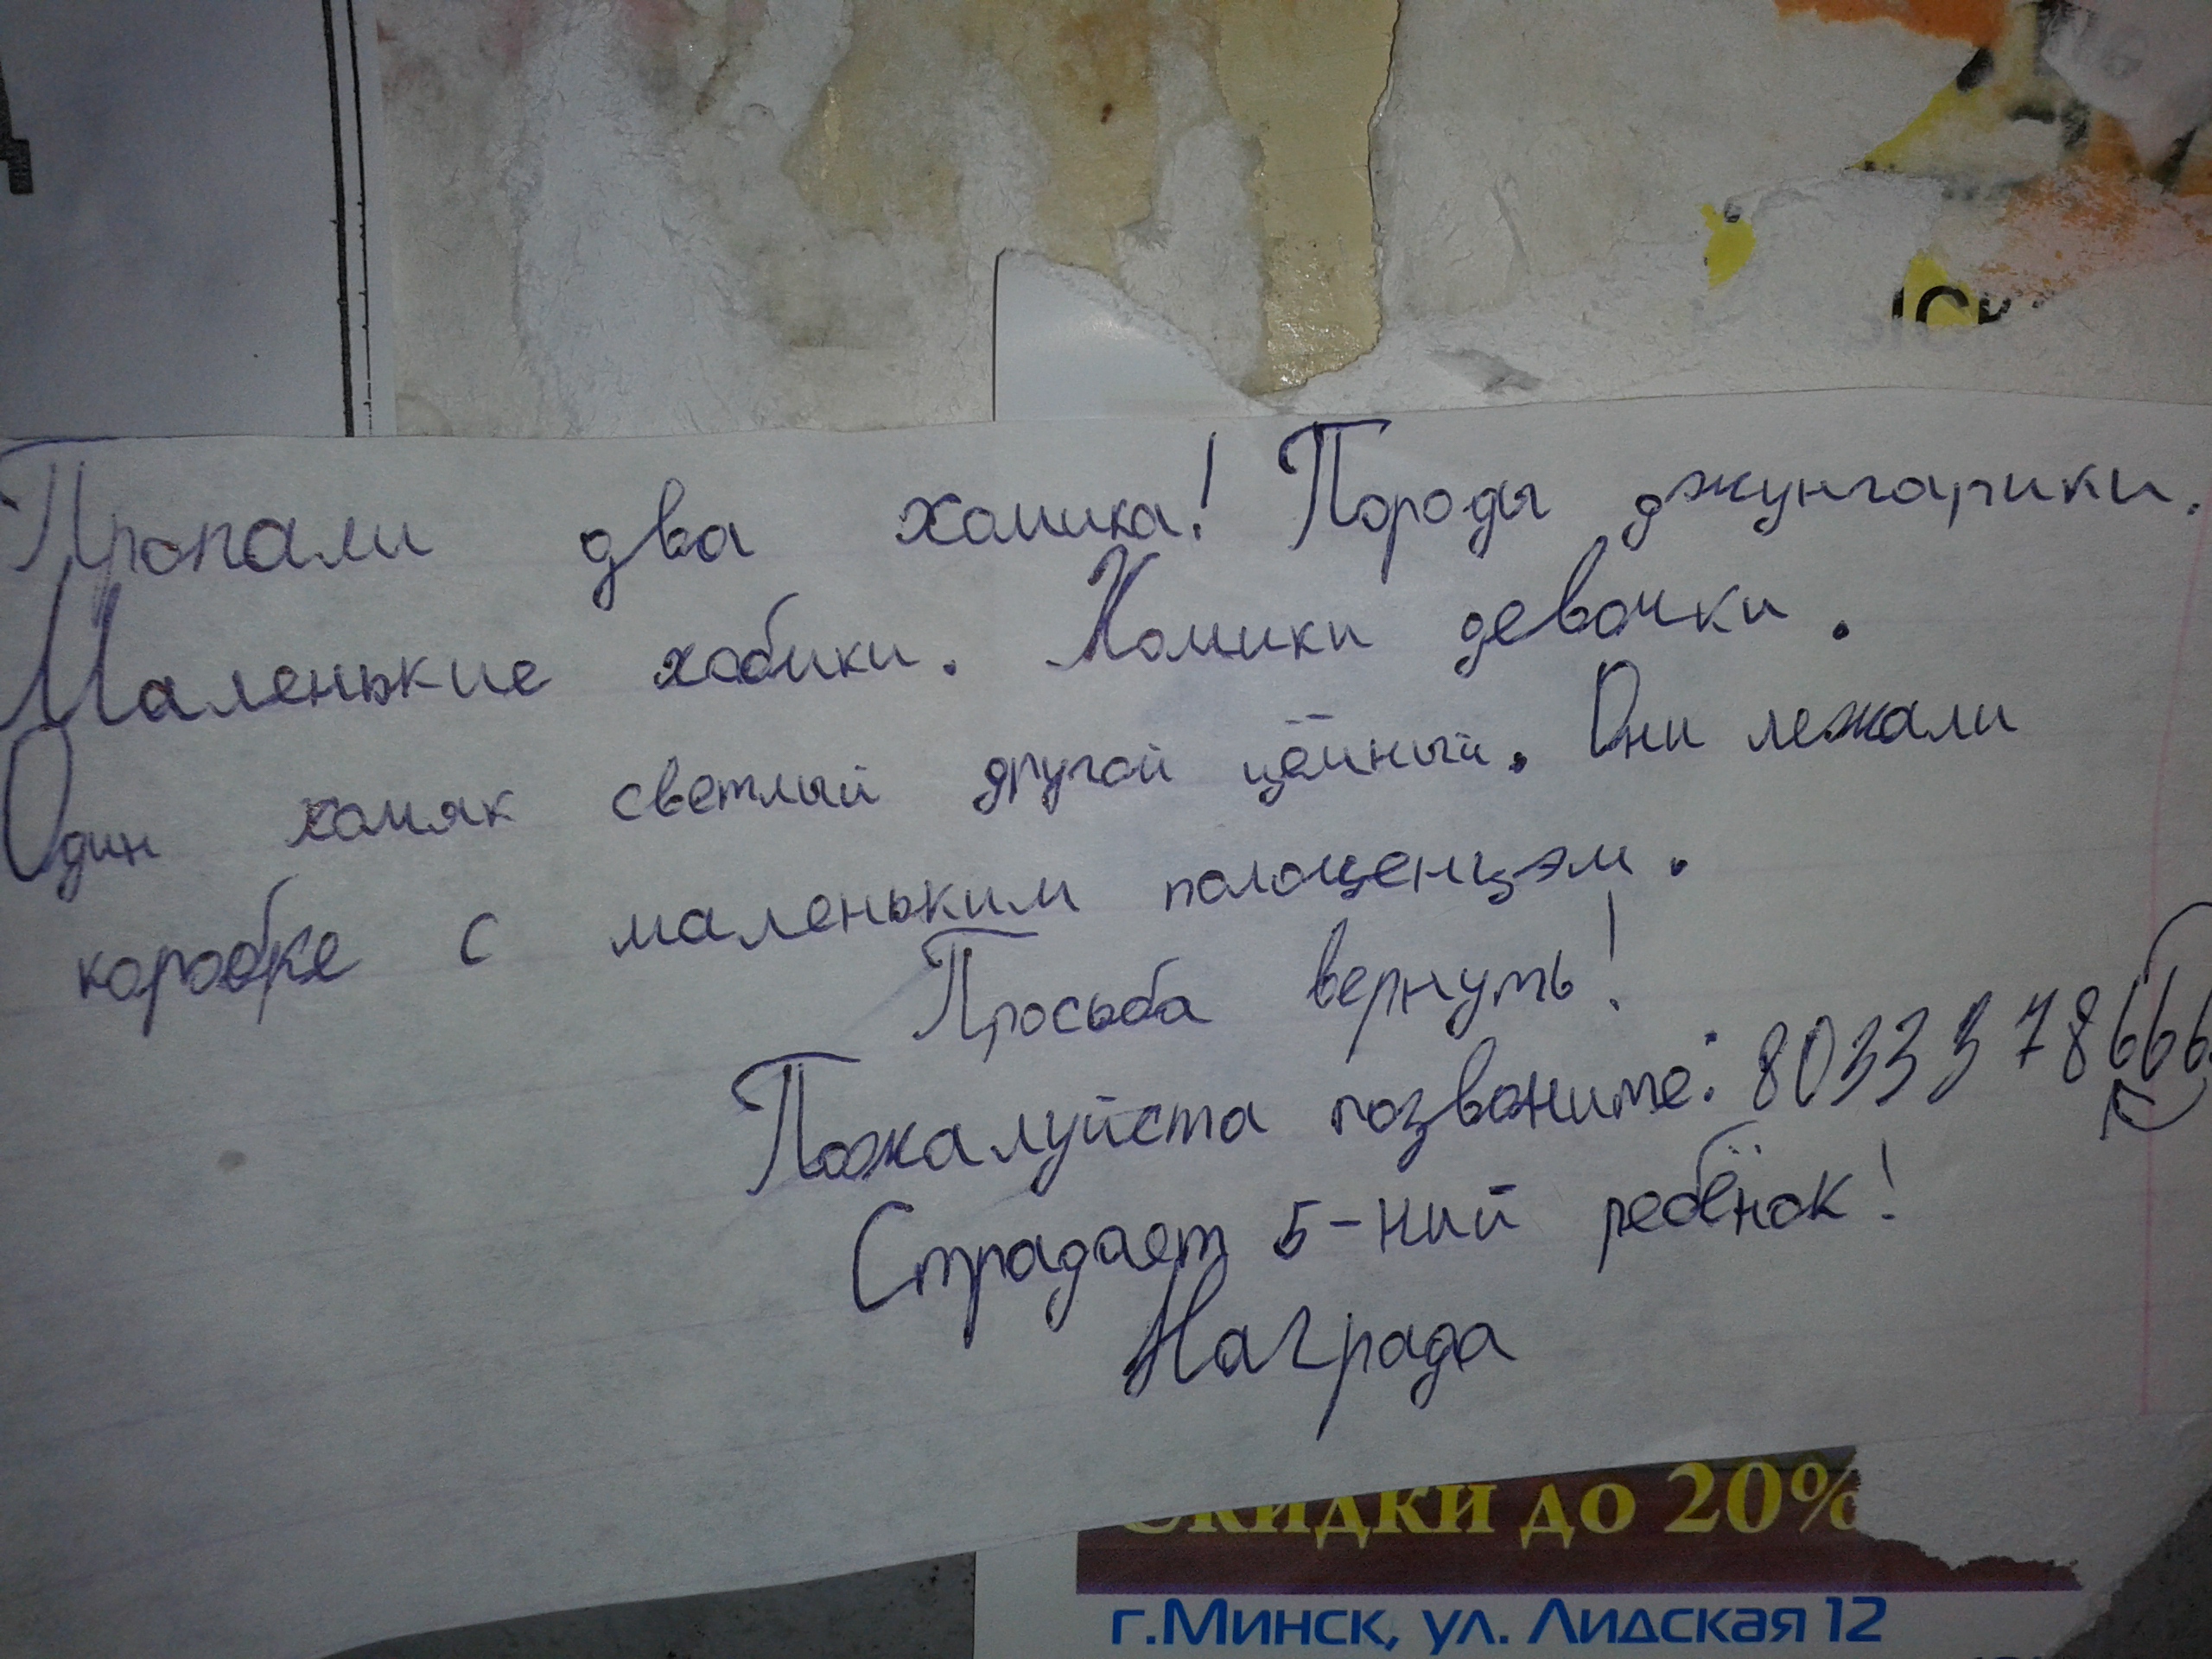 Пропали два хомика! Породы джунгарики.
Маленькие хобики. Хомики девочки.
Один хомяк светлый другой цёмный. Они лежали
коробке с маленьким полоценцэм.
Просьба вернуть!
Пожалуйста позвоните: 80333378666
Страдает 5-ний ребёнок!
Награда
Скидки до 20%
г.Минск, ул. Лидская 12